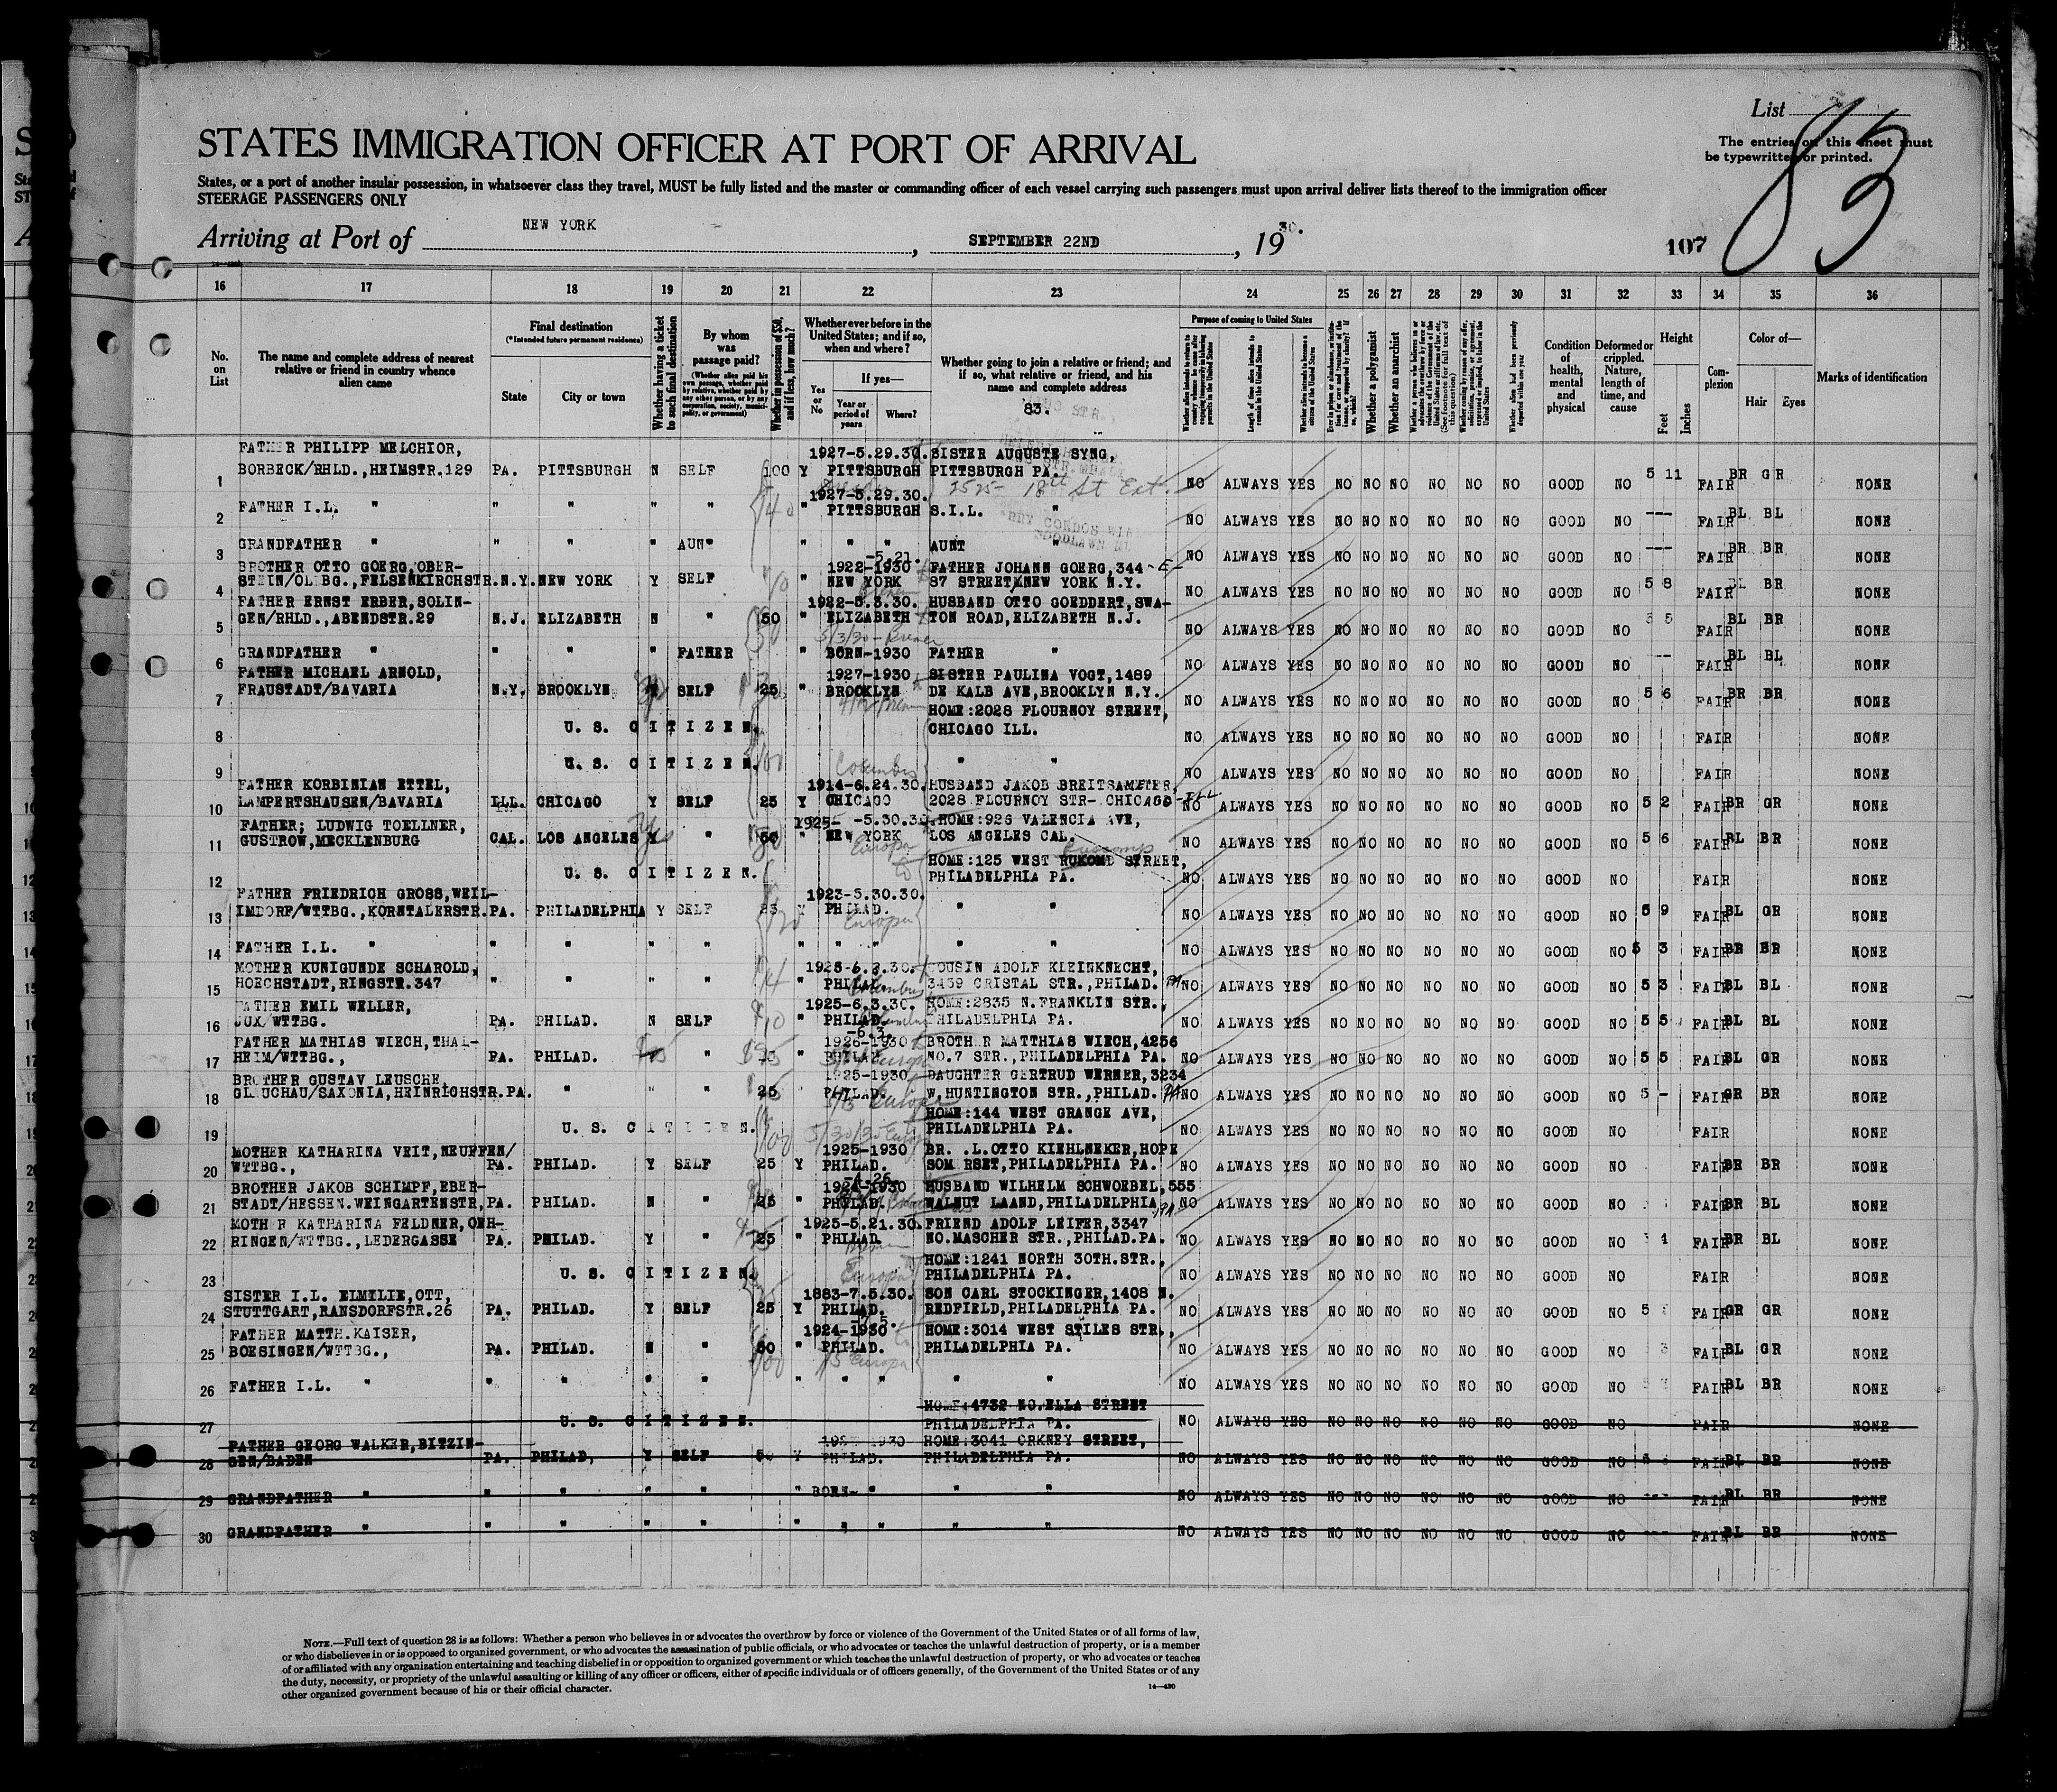 List
83
The entries on this sheet must
be typewritten or printed.
STATES IMMIGRATION OFFICER AT PORT OF ARRIVAL
States, or a port of another insular possession, in whatsoever class they travel, MUST be fully listed and the master or commanding officer of each vessel carrying such passengers must upon arrival deliver lists thereof to the immigration officer
STEERAGE PASSENGERS ONLY
Arriving at Port of NEW YORK, SEPTEMBER 22ND, 1930.
107
16 17 18 19 20 21 22 23 24 25 26 27 28 29 30 31 32 33 34 35 36
No. on List
The name and complete address of nearest relative or friend in country whence alien came
Final destination
(*Intended future permanent residence)
State
City or town
Whether having a ticket to such final destination
By whom was passage paid?
Whether in possession of $50, and if less, how much?
Whether ever before in the United States; and if so, when and where?
Yes or No
If yes—
Year or period of years
Where?
Whether going to join a relative or friend; and if so, what relative or friend, and his name and complete address
83.
Purpose of coming to United States
Whether a polygamist
Whether an anarchist
Condition of health, mental and physical
Deformed or crippled. Nature, length of time, and cause
Height
Feet
Inches
Complexion
Color of—
Hair
Eyes
Marks of identification
1 FATHER PHILIPP MELCHIOR, BORBECK/RHLD.,HEIMSTR.129 PA. PITTSBURGH N SELF 100 Y 1927-5.29.30. PITTSBURGH SISTER AUGUSTE SYNG, PITTSBURGH PA. 2525- 18th St Ext. NO ALWAYS YES NO NO NO NO NO NO GOOD NO 5 11 FAIR BR GR NONE
2 FATHER I.L. " " " " " " 1927-5.29.30. PITTSBURGH S.I.L. " NO ALWAYS YES NO NO NO NO NO NO GOOD NO --- FAIR BL BL NONE
3 GRANDFATHER " " " " AUNT " " " AUNT " NO ALWAYS YES NO NO NO NO NO NO GOOD NO --- FAIR BR BR NONE
4 BROTHER OTTO GOERG,OBER-STEIN/OLDBG.,FELSENKIRCHSTR. N.Y. NEW YORK Y SELF " 1922-1930 -5.21. NEW YORK FATHER JOHANN GOERG,344-E 87 STREET NEW YORK N.Y. NO ALWAYS YES NO NO NO NO NO NO GOOD NO 5 8 FAIR BL BR NONE
5 FATHER ERNST ERBER,SOLIN-GEN/RHLD.,ABENDSTR.29 N.J. ELIZABETH N " 50 " 1922-5.3.30. ELIZABETH HUSBAND OTTO GOEDDERT,SWA-TON ROAD,ELIZABETH N.J. NO ALWAYS YES NO NO NO NO NO NO GOOD NO 5 FAIR BL BR NONE
6 GRANDFATHER " " " " FATHER " BORN-1930 FATHER " NO ALWAYS YES NO NO NO NO NO NO GOOD NO -- FAIR BL BL NONE
7 FATHER MICHAEL ARNOLD, FRAUSTADT/BAVARIA N.Y. BROOKLYN SELF 25 " 1927-1930 BROOKLYN SISTER PAULINA VOGT,1489 DE KALB AVE,BROOKLYN N.Y. NO ALWAYS YES NO NO NO NO NO NO GOOD NO 5 6 FAIR BR BR NONE
8 U. S. CITIZEN. HOME:2028 FLOURNOY STREET, CHICAGO ILL. NO ALWAYS YES NO NO NO NO NO NO GOOD NO FAIR NONE
9 U. S. CITIZEN. " " NO ALWAYS YES NO NO NO NO NO NO GOOD NO FAIR NONE
10 FATHER KORBINIAN ETTEL, LAMPERTSHAUSEN/BAVARIA ILL. CHICAGO Y SELF 25 Y 1914-6.24.30. CHICAGO HUSBAND JAKOB BREITSAMETER, 2028 FLOURNOY STR-CHICAGO-ILL NO ALWAYS YES NO NO NO NO NO NO GOOD NO 5 2 FAIR BR GR NONE
11 FATHER; LUDWIG TOELLNER, GUSTROW,MECKLENBURG CAL. LOS ANGELES Y " 50 " 1925- -5.30.30. NEW YORK Europa HOME:926 VALENCIA AVE, LOS ANGELES CAL. NO ALWAYS YES NO NO NO NO NO NO GOOD NO 5 6 FAIR BL BR NONE
12 U. S. CITIZEN. HOME:125 WEST RUKOMD STREET, PHILADELPHIA PA. NO ALWAYS YES NO NO NO NO NO NO GOOD NO FAIR NONE
13 FATHER FRIEDRICH GROSS,WEIL-IMDORF/WTTBG.,KORNTALERSTR. PA. PHILADELPHIA Y SELF 25 Y 1923-5.30.30. PHILAD. Europa " " NO ALWAYS YES NO NO NO NO NO NO GOOD NO 5 9 FAIR BL GR NONE
14 FATHER I.L. " " " " " " " " " " NO ALWAYS YES NO NO NO NO NO NO GOOD NO 5 3 FAIR BR BR NONE
15 MOTHER KUNIGUNDE SCHAROLD, HOECHSTADT,RINGSTR.347 " " " " " 1925-6.3.30. PHILAD. Columbus COUSIN ADOLF KLEINKNECHT, 3459 CRISTAL STR.,PHILAD. PA NO ALWAYS YES NO NO NO NO NO NO GOOD NO 5 3 FAIR BL BL NONE
16 FATHER EMIL WELLER, JUX/WTTBG. PA. PHILAD. N SELF " 1925-6.3.30. PHILAD. HOME:2835 N.FRANKLIN STR., PHILADELPHIA PA. NO ALWAYS YES NO NO NO NO NO NO GOOD NO 5 5 FAIR BL BL NONE
17 FATHER MATHIAS WIECH,THAL-HEIM/WTTBG., PA. PHILAD. " " 1926-1930 -6.3. PHILAD. Europa BROTHER MATTHIAS WIECH,4256 NO.7 STR.,PHILADELPHIA PA. NO ALWAYS YES NO NO NO NO NO NO GOOD NO 5 5 FAIR BL GR NONE
18 BROTHER GUSTAV LEUSCHE, GLAUCHAU/SAXONIA,HEINRICHSTR. PA. " " " 25 " 1925-1930 PHILAD. Europa DAUGHTER GERTRUD WERNER,3234 W,HUNTINGTON STR.,PHILAD. PA NO ALWAYS YES NO NO NO NO NO NO GOOD NO 5 - FAIR GR BR NONE
19 U. S. CITIZEN. 5/30/30 Europa HOME:144 WEST GRANGE AVE, PHILADELPHIA PA. NO ALWAYS YES NO NO NO NO NO NO GOOD NO FAIR NONE
20 MOTHER KATHARINA VEIT,NEUFFEN/WTTBG., PA. PHILAD. Y SELF 25 Y 1925-1930 PHILAD. BR. .L.OTTO KIEHLNEKER,HOPE SOM RSET,PHILADELPHIA PA. NO ALWAYS YES NO NO NO NO NO NO GOOD NO FAIR BR BR NONE
21 BROTHER JAKOB SCHIMPF,EBER-STADT/HESSEN.WEINGARTENSTR, PA. PHILAD. N " 25 " 1924-1930 PHILAD. HUSBAND WILHELM SCHWOEBEL,555 WALNUT LAAND,PHILADELPHIA, PA NO ALWAYS YES NO NO NO NO NO NO GOOD NO FAIR BR BL NONE
22 MOTHER KATHARINA FELDNER,OEH-RINGEN/WTTBG.,LEDERGASSE PA. PHILAD. Y " 25 " 1925-5.21.30. PHILAD. FRIEND ADOLF LEIFER,3347 NO.MASCHER STR.,PHILAD.PA. NO ALWAYS YES NO NO NO NO NO NO GOOD NO 4 FAIR BR BL NONE
23 U. S. CITIZEN. Europa HOME:1241 NORTH 30TH.STR., PHILADELPHIA PA. NO ALWAYS YES NO NO NO NO NO NO GOOD NO FAIR NONE
24 SISTER I.L. ELMILIE,OTT, STUTTGART,RANSDORFSTR.26 PA. PHILAD. Y SELF 25 Y 1883-7.5.30. PHILAD. SON CARL STOCKINGER,1408 N. REDFIELD,PHILADELPHIA PA. NO ALWAYS YES NO NO NO NO NO NO GOOD NO 5 FAIR GR GR NONE
25 FATHER MATTH.KAISER, BOESINGEN/WTTBG., PA. PHILAD. N " 50 " 1924-1930 -7.5. PHILAD. Europa HOME:3014 WEST STILES STR., PHILADELPHIA PA. NO ALWAYS YES NO NO NO NO NO NO GOOD NO 3 FAIR BL GR NONE
26 FATHER I.L. " " " " " " " " " " NO ALWAYS YES NO NO NO NO NO NO GOOD NO FAIR BL BR NONE
27 U. S. CITIZEN. HOME:4732 NO.ELLA STREET PHILADELPHIA PA. NO ALWAYS YES NO NO NO NO NO NO GOOD NO FAIR NONE
28 FATHER GEORG WALKER,BITZIN-GEN/BADEN PA. PHILAD, Y SELF 50 Y 1930 PHILAD. HOME:3041 ORKNEY STREET, PHILADELPHIA PA. NO ALWAYS YES NO NO NO NO NO NO GOOD NO 5 FAIR BL BR NONE
29 GRANDFATHER " " " " " " BORN- " " " NO ALWAYS YES NO NO NO NO NO NO GOOD NO --- FAIR BL BR NONE
30 GRANDFATHER " " " " " " " " " " NO ALWAYS YES NO NO NO NO NO NO GOOD NO --- FAIR BL BR NONE
NOTE.—Full text of question 28 is as follows: Whether a person who believes in or advocates the overthrow by force or violence of the Government of the United States or of all forms of law,
or who disbelieves in or is opposed to organized government, or who advocates the assassination of public officials, or who advocates or teaches the unlawful destruction of property, or is a member
of or affiliated with any organization entertaining and teaching disbelief in or opposition to organized government or which teaches the unlawful destruction of property, or who advocates or teaches
the duty, necessity, or propriety of the unlawful assaulting or killing of any officer or officers, either of specific individuals or of officers generally, of the Government of the United States or of any
other organized government because of his or their official character.
14—430